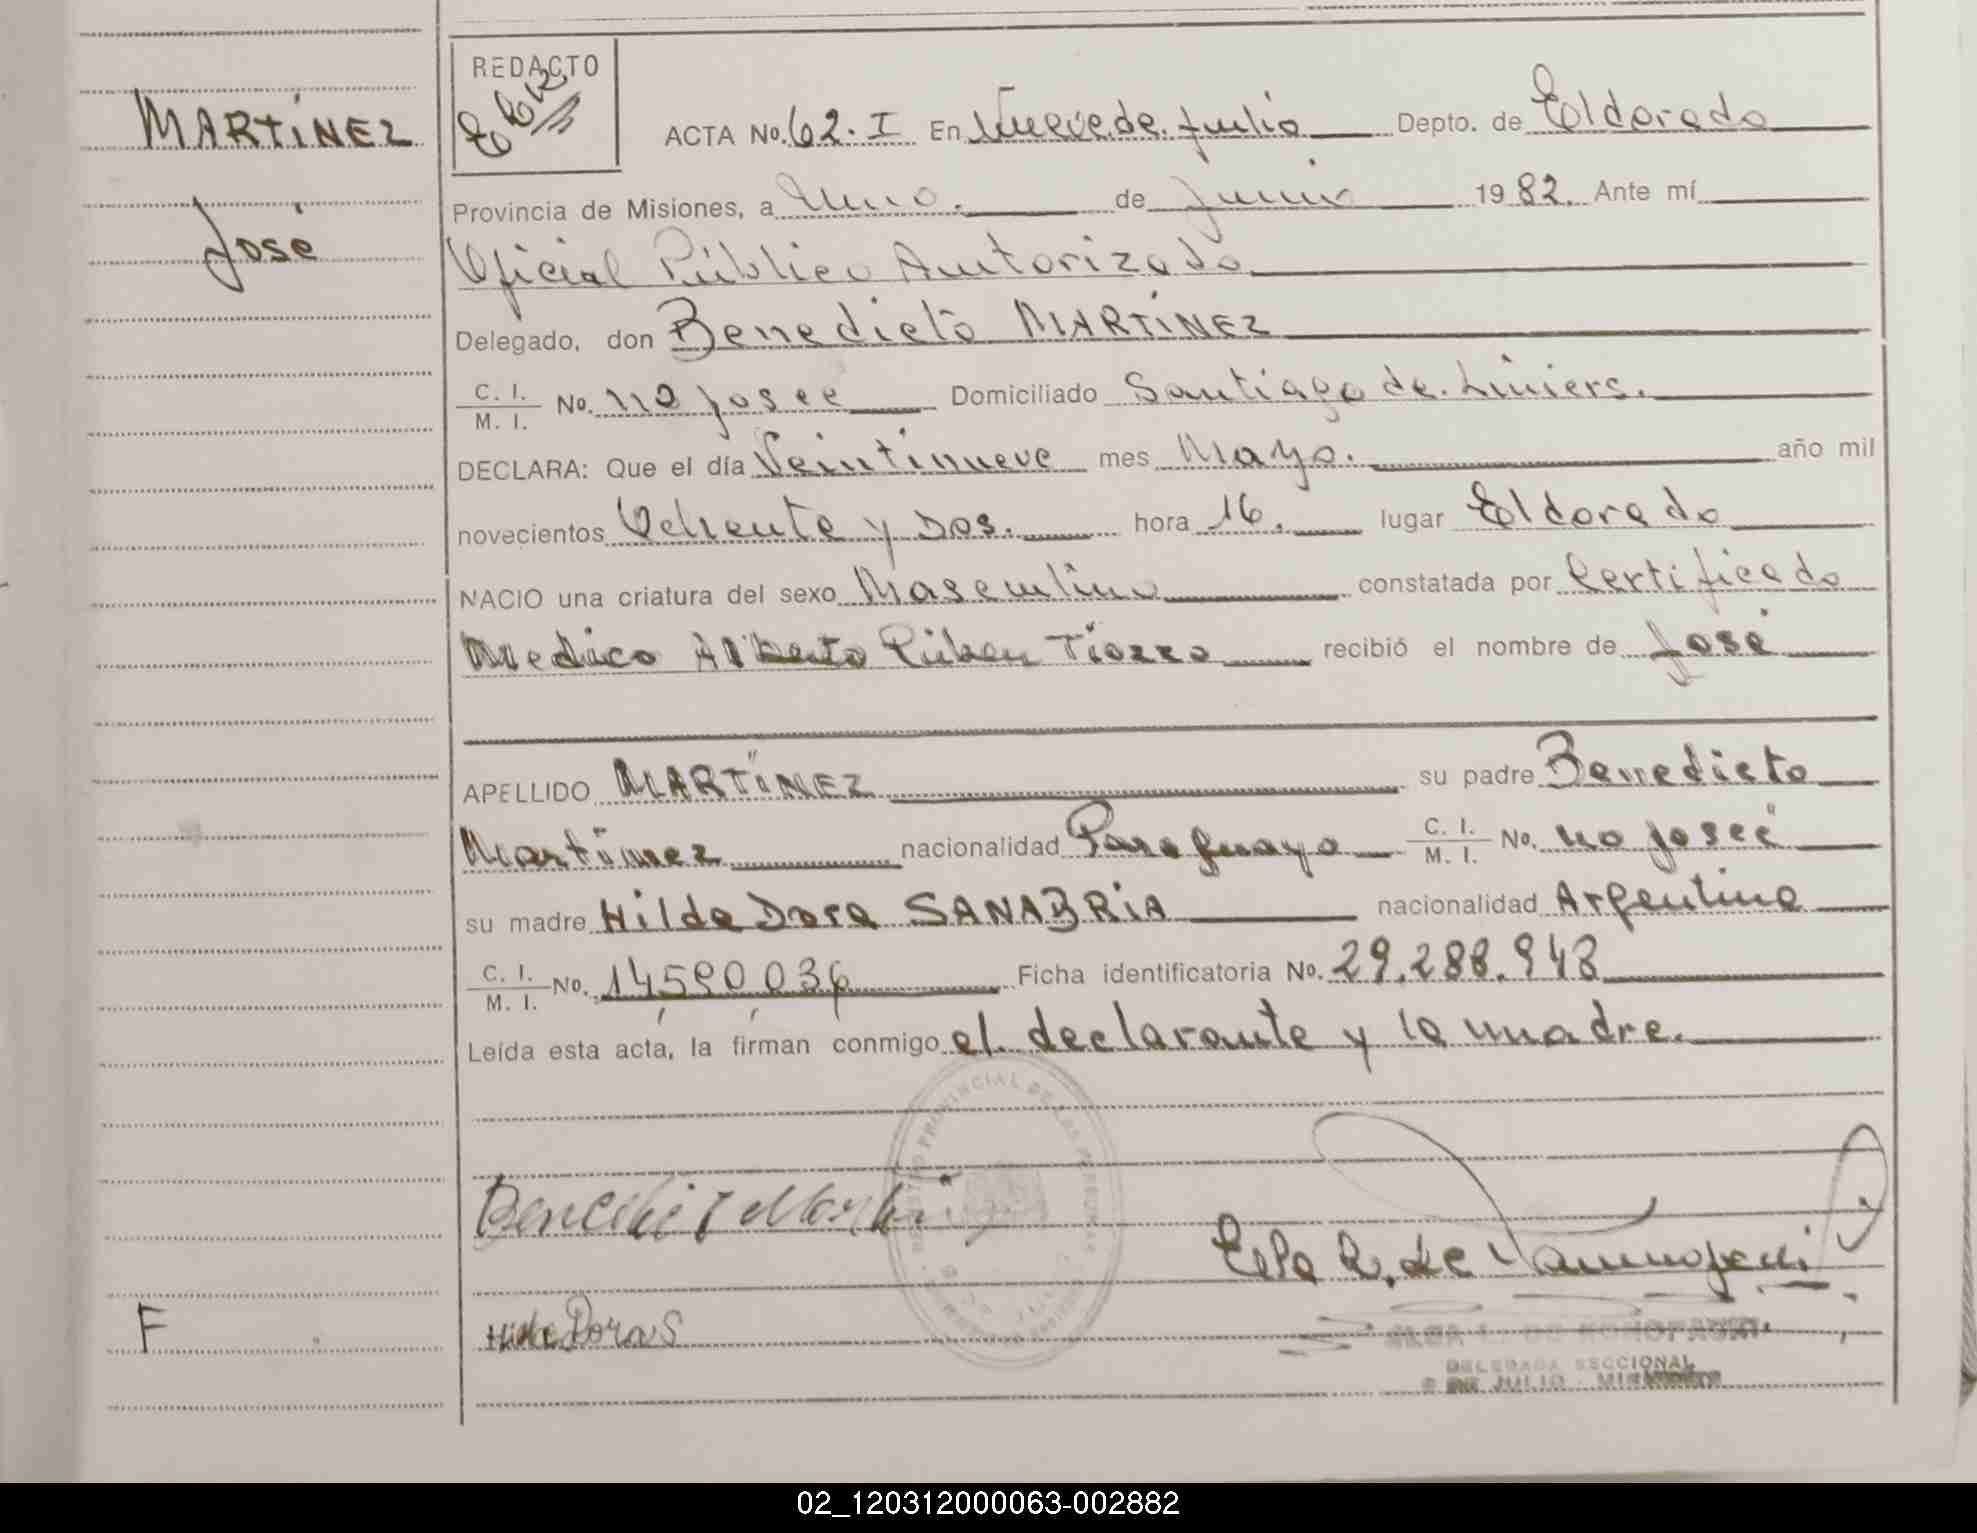 MARTÍNEZ
José
REDACTO
ACTA No. 62. I En Nueve de Julio Depto. de Eldorado
Provincia de Misiones, a Uno. de Junio 1982. Ante mí
Oficial Público Autorizado
Delegado, don Benedicto MARTÍNEZ
C. I.
M. I. No. no posee Domiciliado Santiago de Liniers.
DECLARA: Que el día Veintinueve mes Mayo. año mil
novecientos Ochenta y Dos. hora 16. lugar Eldorado
NACIO una criatura del sexo Masculino constatada por Certificado
Medico Alberto Rúben Tiozzo recibió el nombre de José
APELLIDO MARTÍNEZ su padre Benedicto
Martínez nacionalidad Paraguaya C. I.
M. I. No. no posee
su madre Hilda Dora SANABRIA nacionalidad Argentina
C. I.
M. I. No. 14,590,036 Ficha identificatoria No. 29.288.943
Leída esta acta, la firman conmigo el declarante y la madre.
Hilda Dora S
F
DELEGADA SECCIONAL
9 DE JULIO - MISIONES
02_120312000063-002882